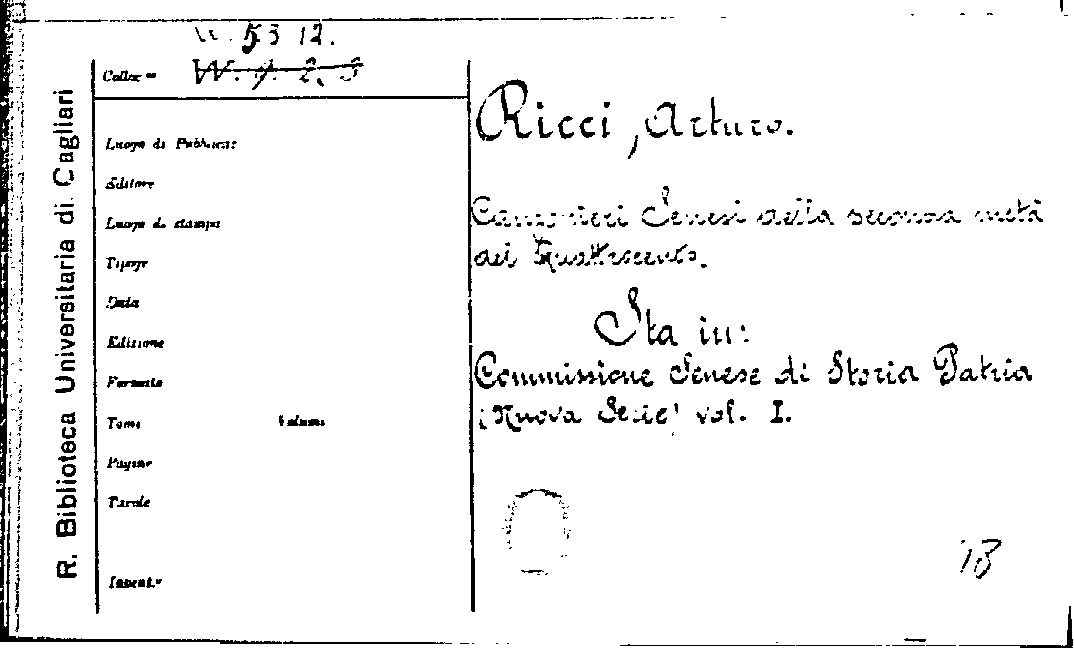 53 12.
Colloc.ne W. 9. 2. 3
R. Biblioteca Universitaria di Cagliari
Luogo di Pubblicaz
Editore
Luogo di stampa
Tipogr
Data
Edizione
Formato
Tomi Volumi
Pagine
Tavole
Invent.º
Ricci, Arturo.
Canzonieri Senesi della seconda metà
del Quattrocento.
Sta in:
Commissione Senese di Storia Patria
(Nuova Serie) vol. I.